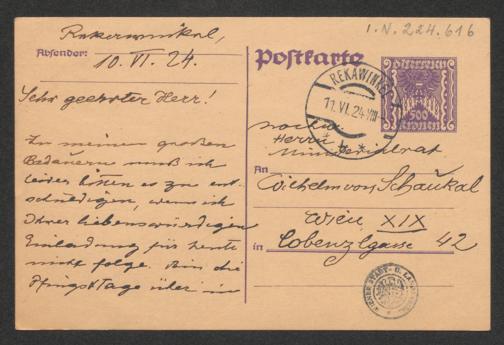 Rekawinkel,
Absender: 10. VI. 24.
Sehr geehrter Herr!
Zu meinem großen
Bedauern muß ich
leider bitten es zu ent-
schuldigen, wenn ich
Ihrer liebenswürdigen
Einladung für heute
nicht folge. Bin die
Pfingsttage über in
I.N. 224.616
Postkarte
500
REKAWINKEL
11. VI. 24
* b *
Herrn
Ministerialrat
An Wilhelm von Schaukal
Wien XIX
in Cobenzlgasse 42